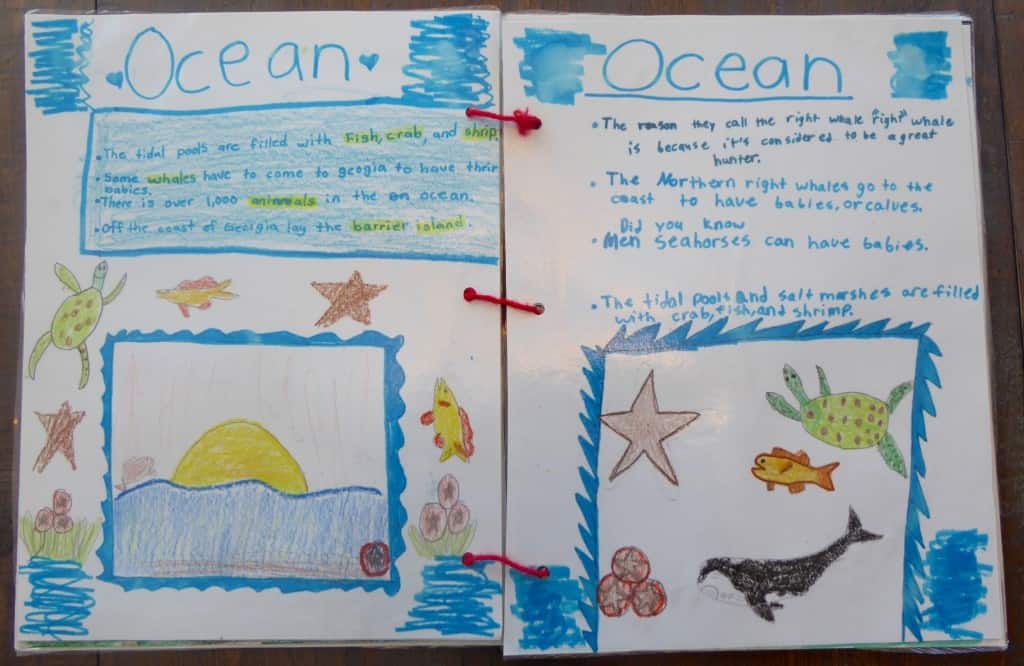 Ocean
• The tidal pools are filled with Fish, crab, and shrip.
• Some whales have to come to geogia to have their
babies.
• There is over 1,000 aninmials in the on ocean.
• Off the coast of Georgia lay the barrier island.
Ocean
• The reason they call the right whale "right" whale
is because it's considered to be a great
hunter.
• The Northern right whales go to the
coast to have babies, or calves.
Did you know
• Men seahorses can have babies.
• The tidal pools and salt marshes are filled
with crab, fish, and shrimp.